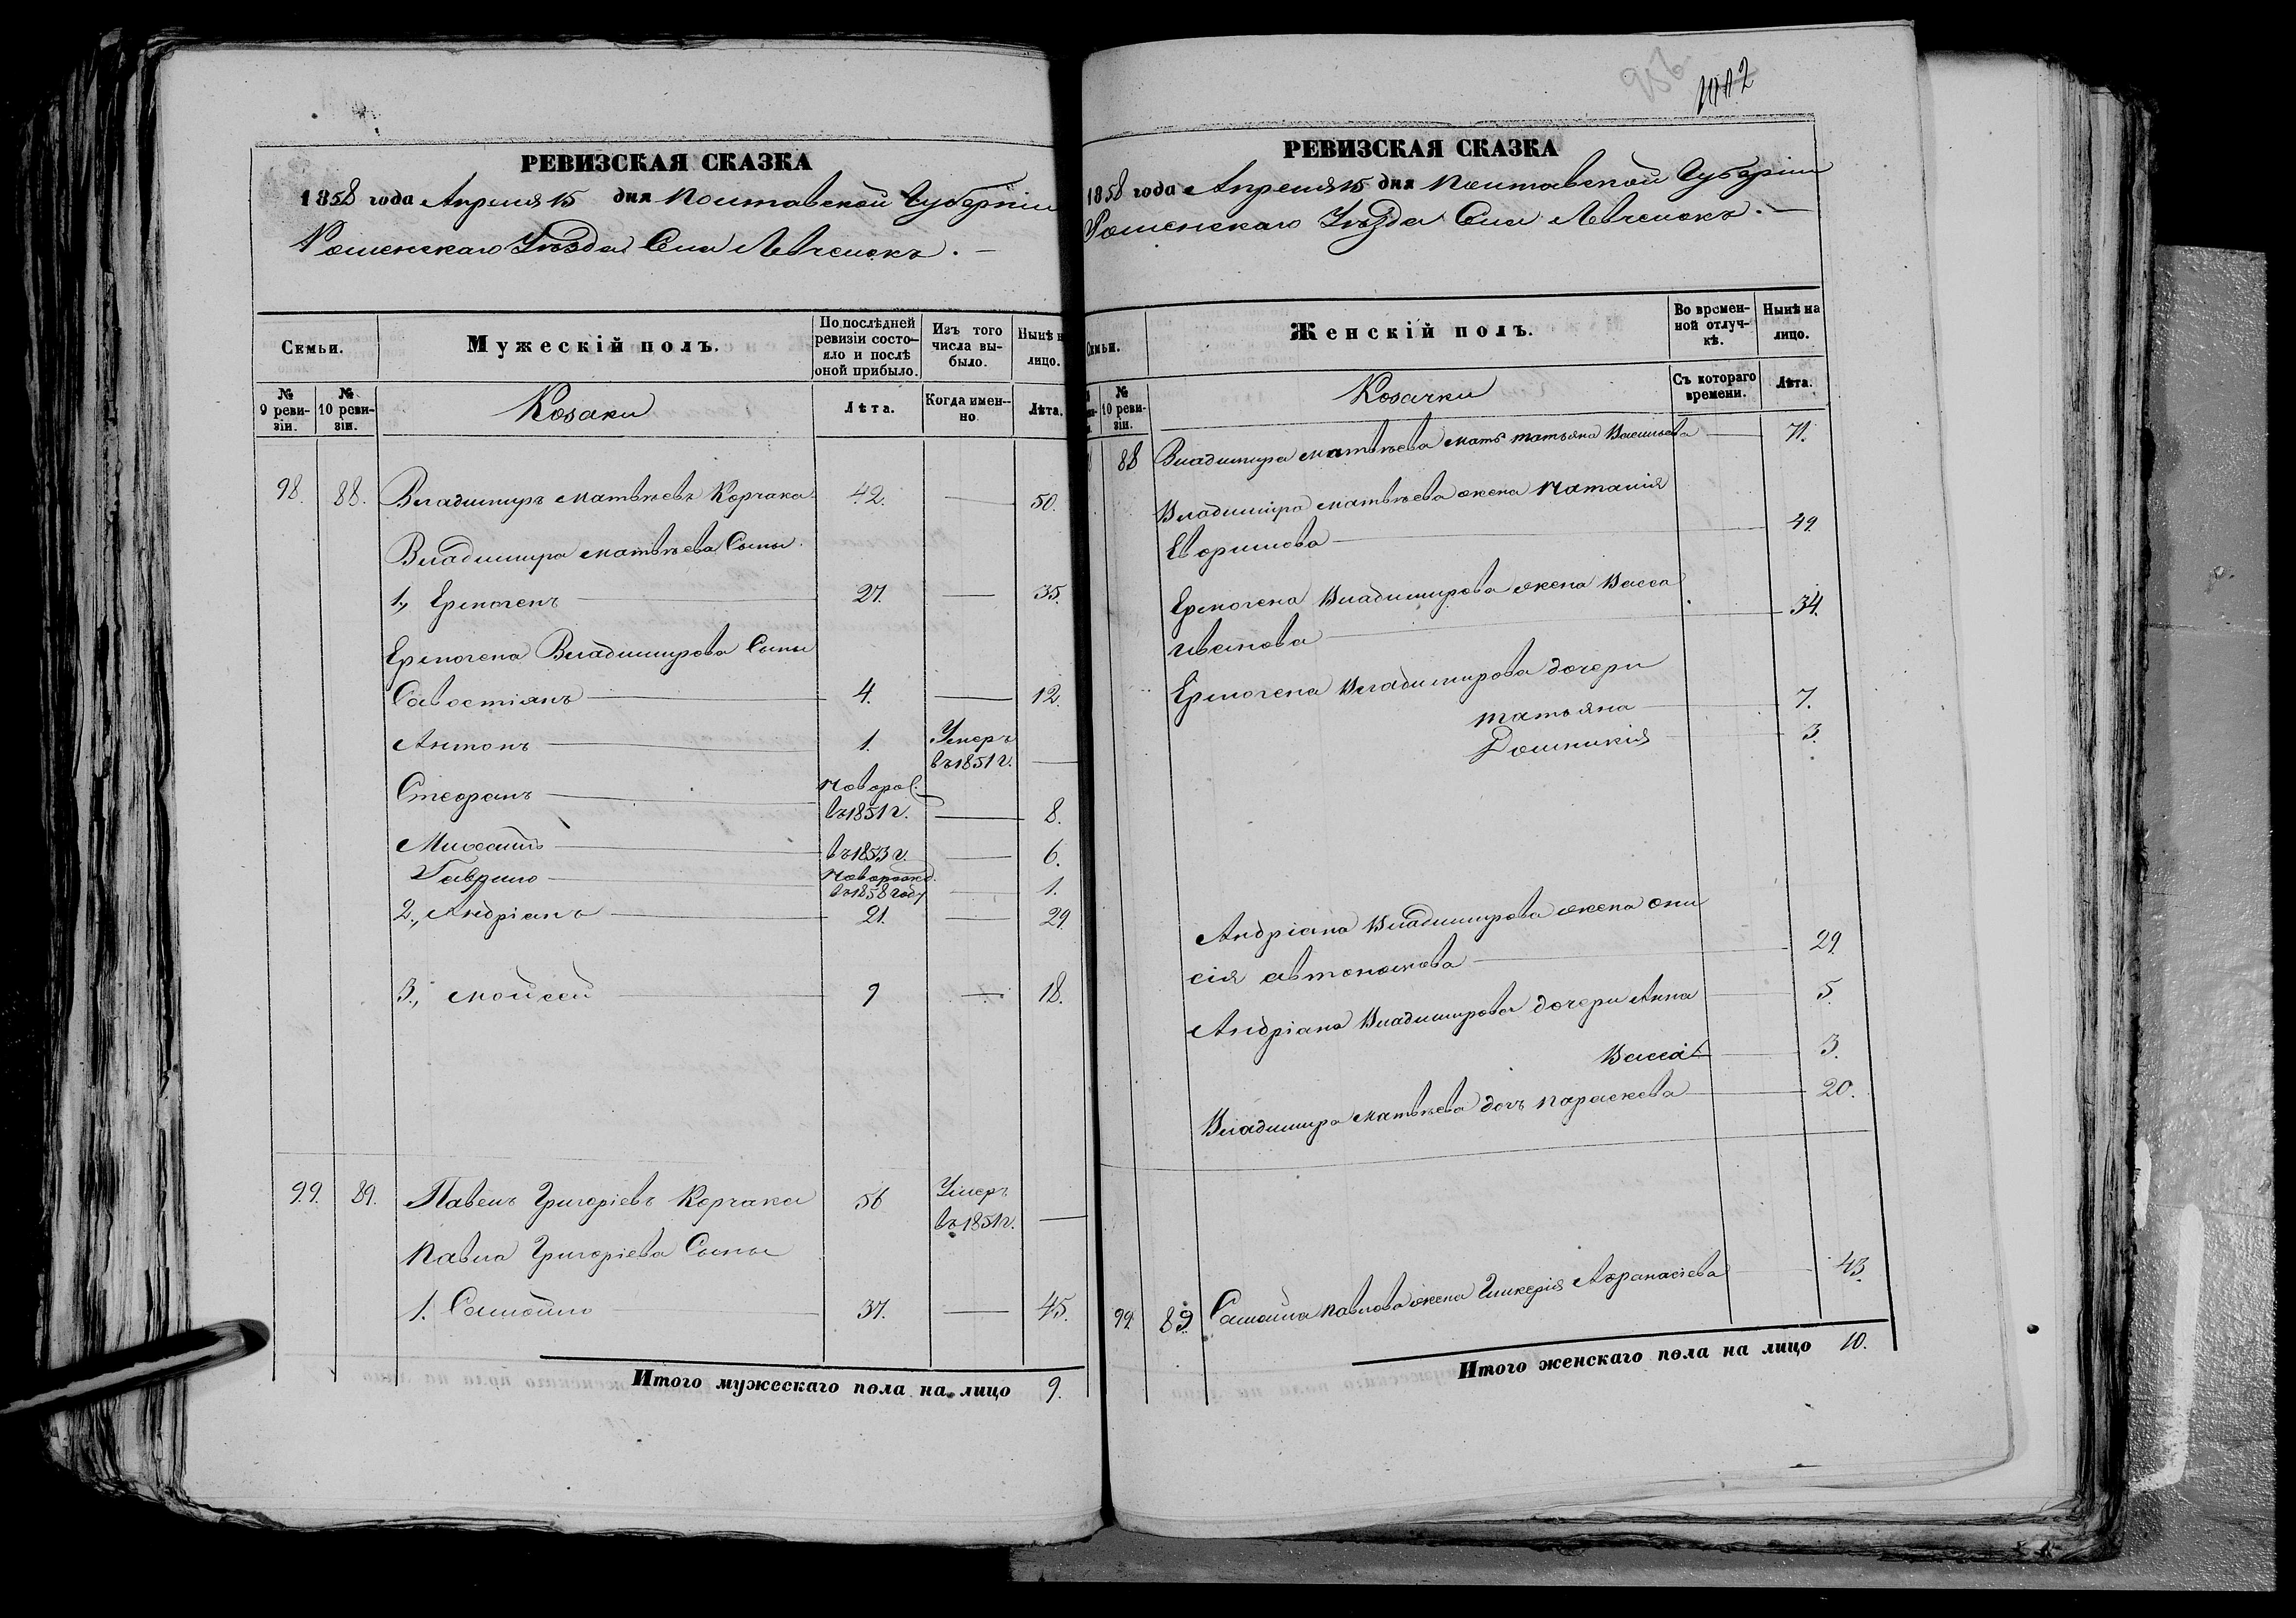 РЕВИЗСКАЯ СКАЗКА
1858 года Апреля 15 дня Полтавской Губерніи
Роменскаго Уѣзда Села Левченокъ.
Семьи.
Мужескій полъ.
По послѣдней ревизіи состояло и послѣ оной прибыло.
Изъ того числа выбыло.
Нынѣ на лицо.
№ 9 ревизіи.
№ 10 ревизіи.
Козаки
Лѣта.
Когда именно
Лѣта.
98. 88. Владимиръ Матвѣевъ Корчака 42. — 50.
Владимира Матвѣева Сыны
1., Ермогенъ 27. — 35.
Ермогена Владимирова Сыны
Савостіянъ 4. — 12.
Антонъ 1. Умеръ
въ 1851 г. —
Стефанъ Новорож.
въ 1851 г. — 8.
Михаилъ въ 1853 г. — 6.
Гаврило Новорожд.
въ 1858 году — 1.
2., Андріанъ 21. — 29.
3., Мойсей 9 — 18.
99. 89. Павелъ Григоріевъ Корчака 56 Умеръ
въ 1851 г. —
Павла Григоріева Сыны
1. Самойло 37. — 45.
Итого мужескаго пола на лицо 9.
956
2
РЕВИЗСКАЯ СКАЗКА
1858 года Апреля 15 дня Полтавской Губерніи
Роменскаго Уѣзда Села Левченокъ.
Семьи.
Женскій полъ.
Во временной отлучкѣ.
Нынѣ на лицо.
№ 10 ревизіи.
Козачки
Съ котораго времени.
Лѣта.
88 Владимира Матвѣева мать Татьяна Васильева — 71.
Владимира Матвѣева жена Наталія
— 49.
Ермогена Владимирова жена Васса
Иванова — 34.
Ермогена Владимирова дочери
Татьяна — 7.
Домникія — 3.
Андріана Владимирова жена Они
сія Автономова — 29
Андріана Владимирова дочери Анна — 5.
Васса — 3.
Владимира Матвѣева дочь Параскева — 20.
99. 89. Самойла Павлова жена Гликерія Афанасіева — 43.
Итого женскаго пола на лицо 10.